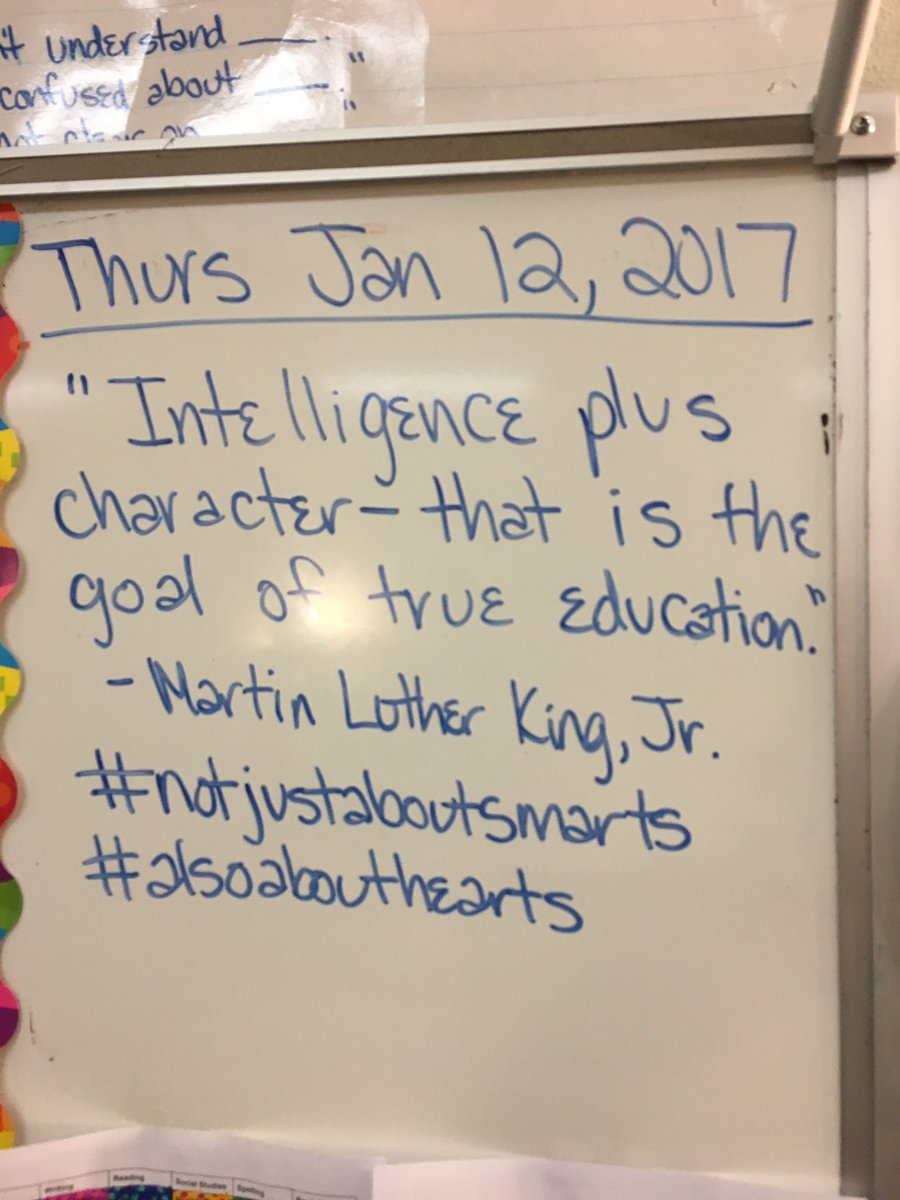 it understand ___.
confused about ___."
not clear on
Thurs Jan 12, 2017
"Intelligence plus
character- that is the
goal of true education."
- Martin Luther King, Jr.
#notjustaboutsmarts
#alsoabouthearts
Writing Reading Social Studies Spelling